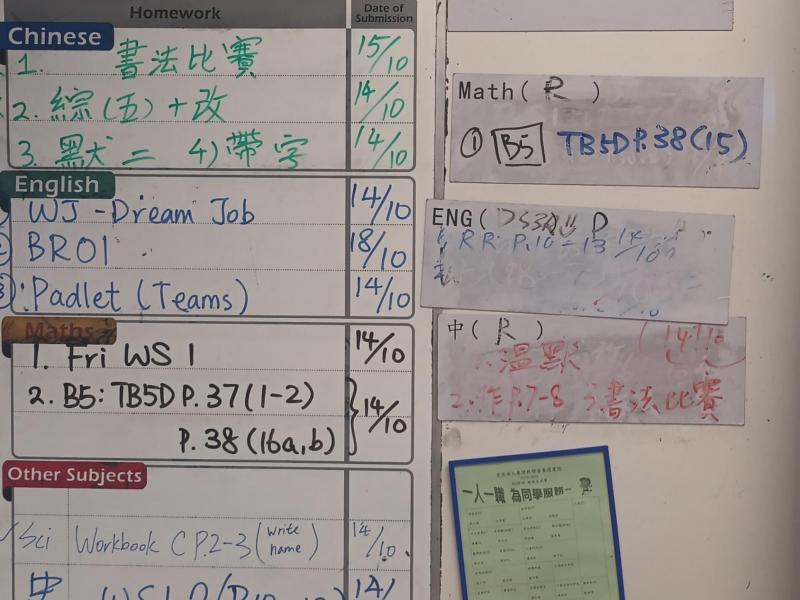 Homework
Date of Submission
Chinese
1. 書法比賽 15/10
2. 綜(五)+改 14/10
3. 默二 4)帶字 14/10
English
WJ - Dream Job 14/10
BR01 18/10
Padlet (Teams) 14/10
Maths
1. Fri WS 1 14/10
2. B5: TB5D P.37 (1-2)
P.38 (16a,b) 14/10
Other Subjects
Sci Workbook C P.2-3 (write name) 14/10
WS
Math( R )
① B5 TB5D P.38(15)
ENG( D
RR P.10-13 14/10
中( R ) 14/10
溫默
2.作P.7-8 3書法比賽
一人一職 為同學服務